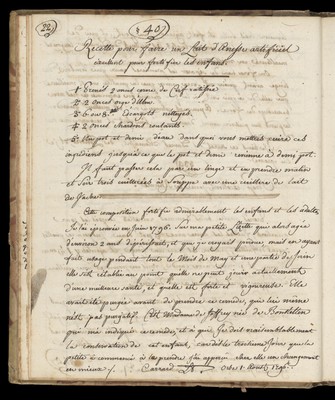 22
40
Recette pour faire un Lait d'Anesse artificiel
excellent pour fortifier les enfans.
1° Prenés 2 onces corne de Cerf ratissée
2° 2 onces orge d'
3° 6 ou 8 Escargots nettoyés
4° 2 onces chardon roulant
5° Un pot et demi d'eau dans quoi vous mettrés cuire ces
ingrédiens jusqu'à ce que le pot et demi revienne à demi pot.
Il faut passer cela par un linge et en prendre matin
et soir trois cuillerées à Souppe avec une cuillere de lait
de Vache.
Cette composition fortifie admirablement les enfans et les adultes
Je l'ai éprouvée en Juin 1795 sur ma petite Lisette qui alors agée
d'environ 2 ans dépérissoit, et que je croyais perdue, mais en ayant
fait usage pendant tout le Mois de May et une partie de Juin
elle s'est rétablie au point qu'elle ne peut jouir actuellement
d'une meilleure santé, et qu'elle est forte et vigoureuse. Elle
avait été purgée avant de prendre ce remède, qui lui même
n'est pas purgatif. C'est Madame de Joffrey née de
qui m'a indiqué ce remède, et à qui je dois vraisemblablement
la conservation de cet enfant, car dès le troisieme Jour que la
petite a commencé à les prendre j'ai apperçu chez elle un changement
en mieux. Ce 1. Aoust 1795.